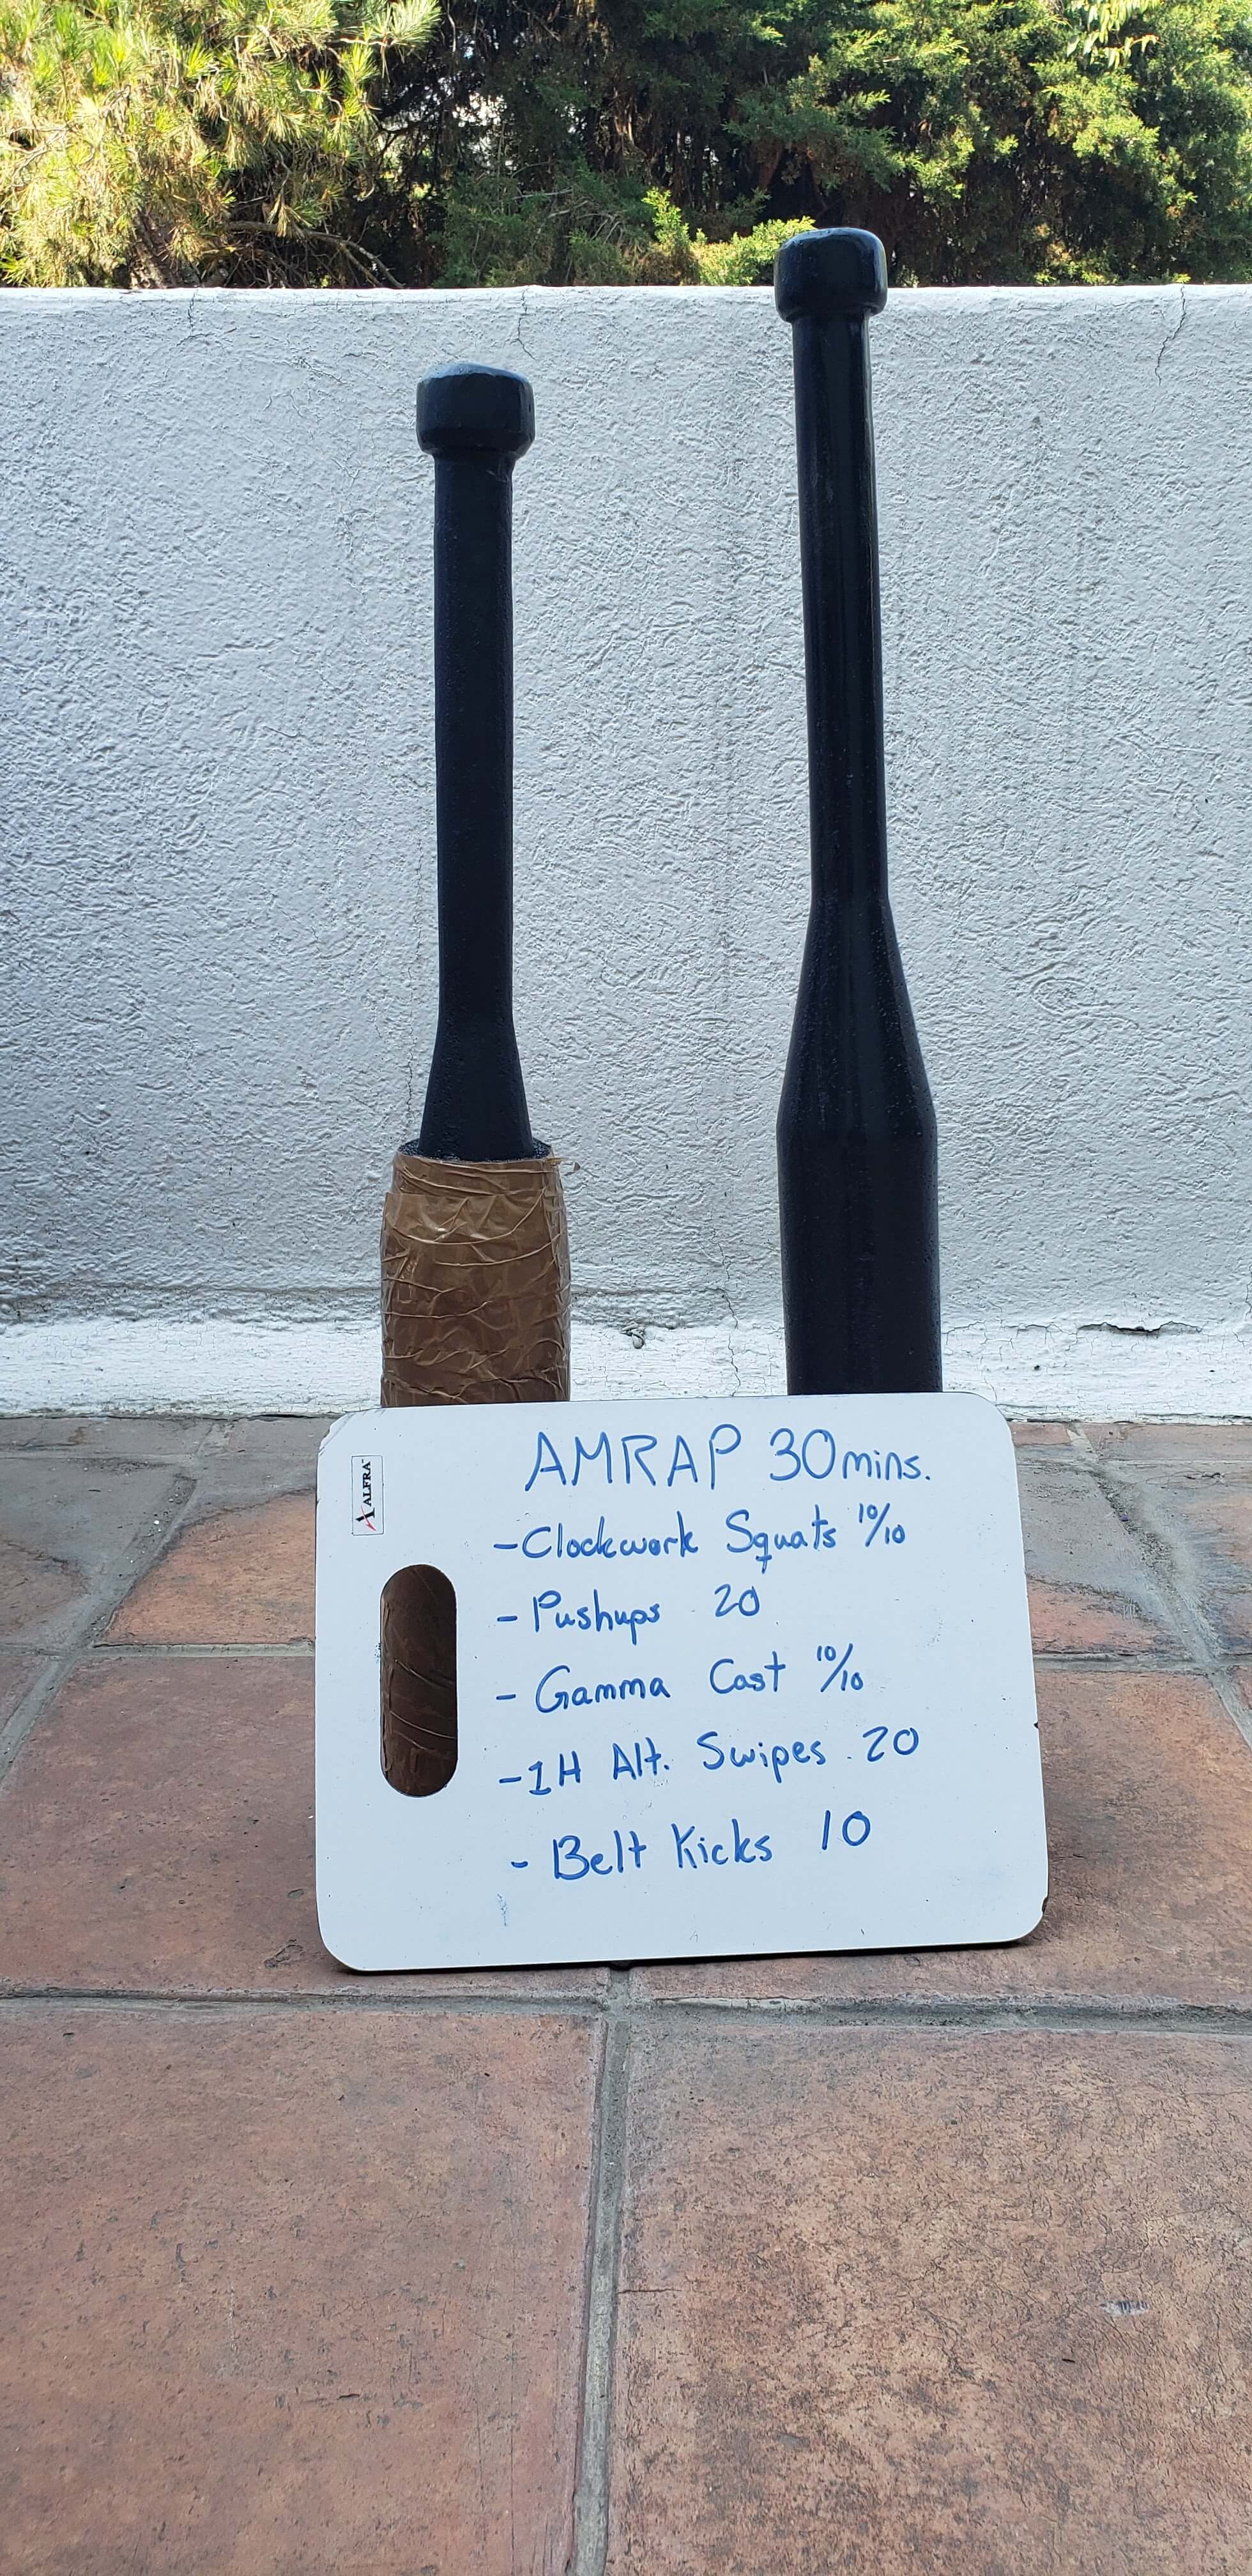 ALFRA
AMRAP 30mins.
-Clockwork Squats 10/10
-Pushups 20
-Gamma Cast 10/10
-1H Alt. Swipes 20
-Belt Kicks 10